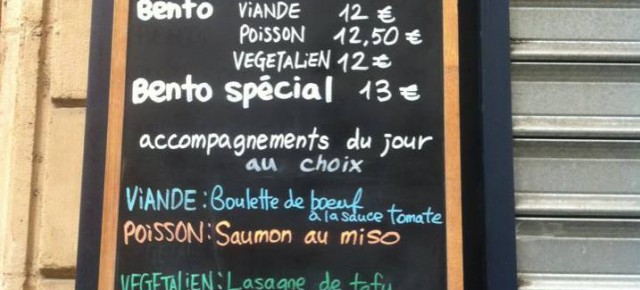 Bento VIANDE 12 €
POISSON 12,50 €
VEGETALIEN 12 €
Bento spécial 13 €
accompagnements du jour
au choix
VIANDE : Boulette de boeuf
à la sauce tomate
POISSON : Saumon au miso
VEGETALIEN : Lasagne de tofu